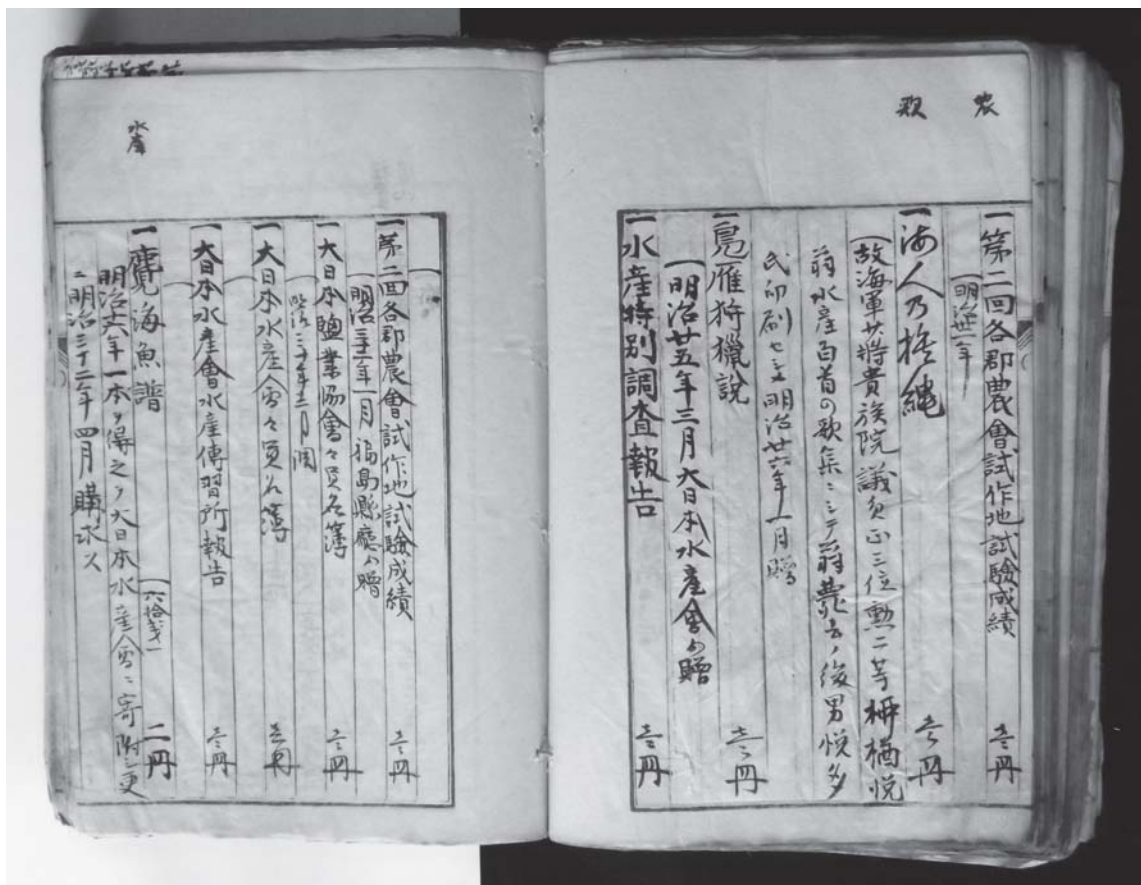 農
歌
一第二回各郡農會試作地試驗成績
(明治廿一年)
壱冊
一海人乃栲縄
壱冊
(故海軍少將貴族院議員正三位勲二等柳楢悦
翁水産百首の歌集ニシテ翁薨去ノ後男悦多
氏印刷セラ 明治廿六年一月贈
一鳬雁狩獵説
壱冊
(明治廿五年三月大日本水産會ゟ贈
一水産特別調査報告
壱冊
水産
一第二回各郡農會試作地試驗成績
壱冊
(明治三十二年一月福島縣廳ゟ贈
一大日本鹽業協會々員名簿
壱冊
一大日本水産會々員名簿
壱冊
一大日本水産會水産傳習所報告
壱冊
一靏海魚譜
二冊
明治十六年一本ヲ得之ヲ大日本水産會ニ寄附シ更
ニ明治三十二年四月購求ス